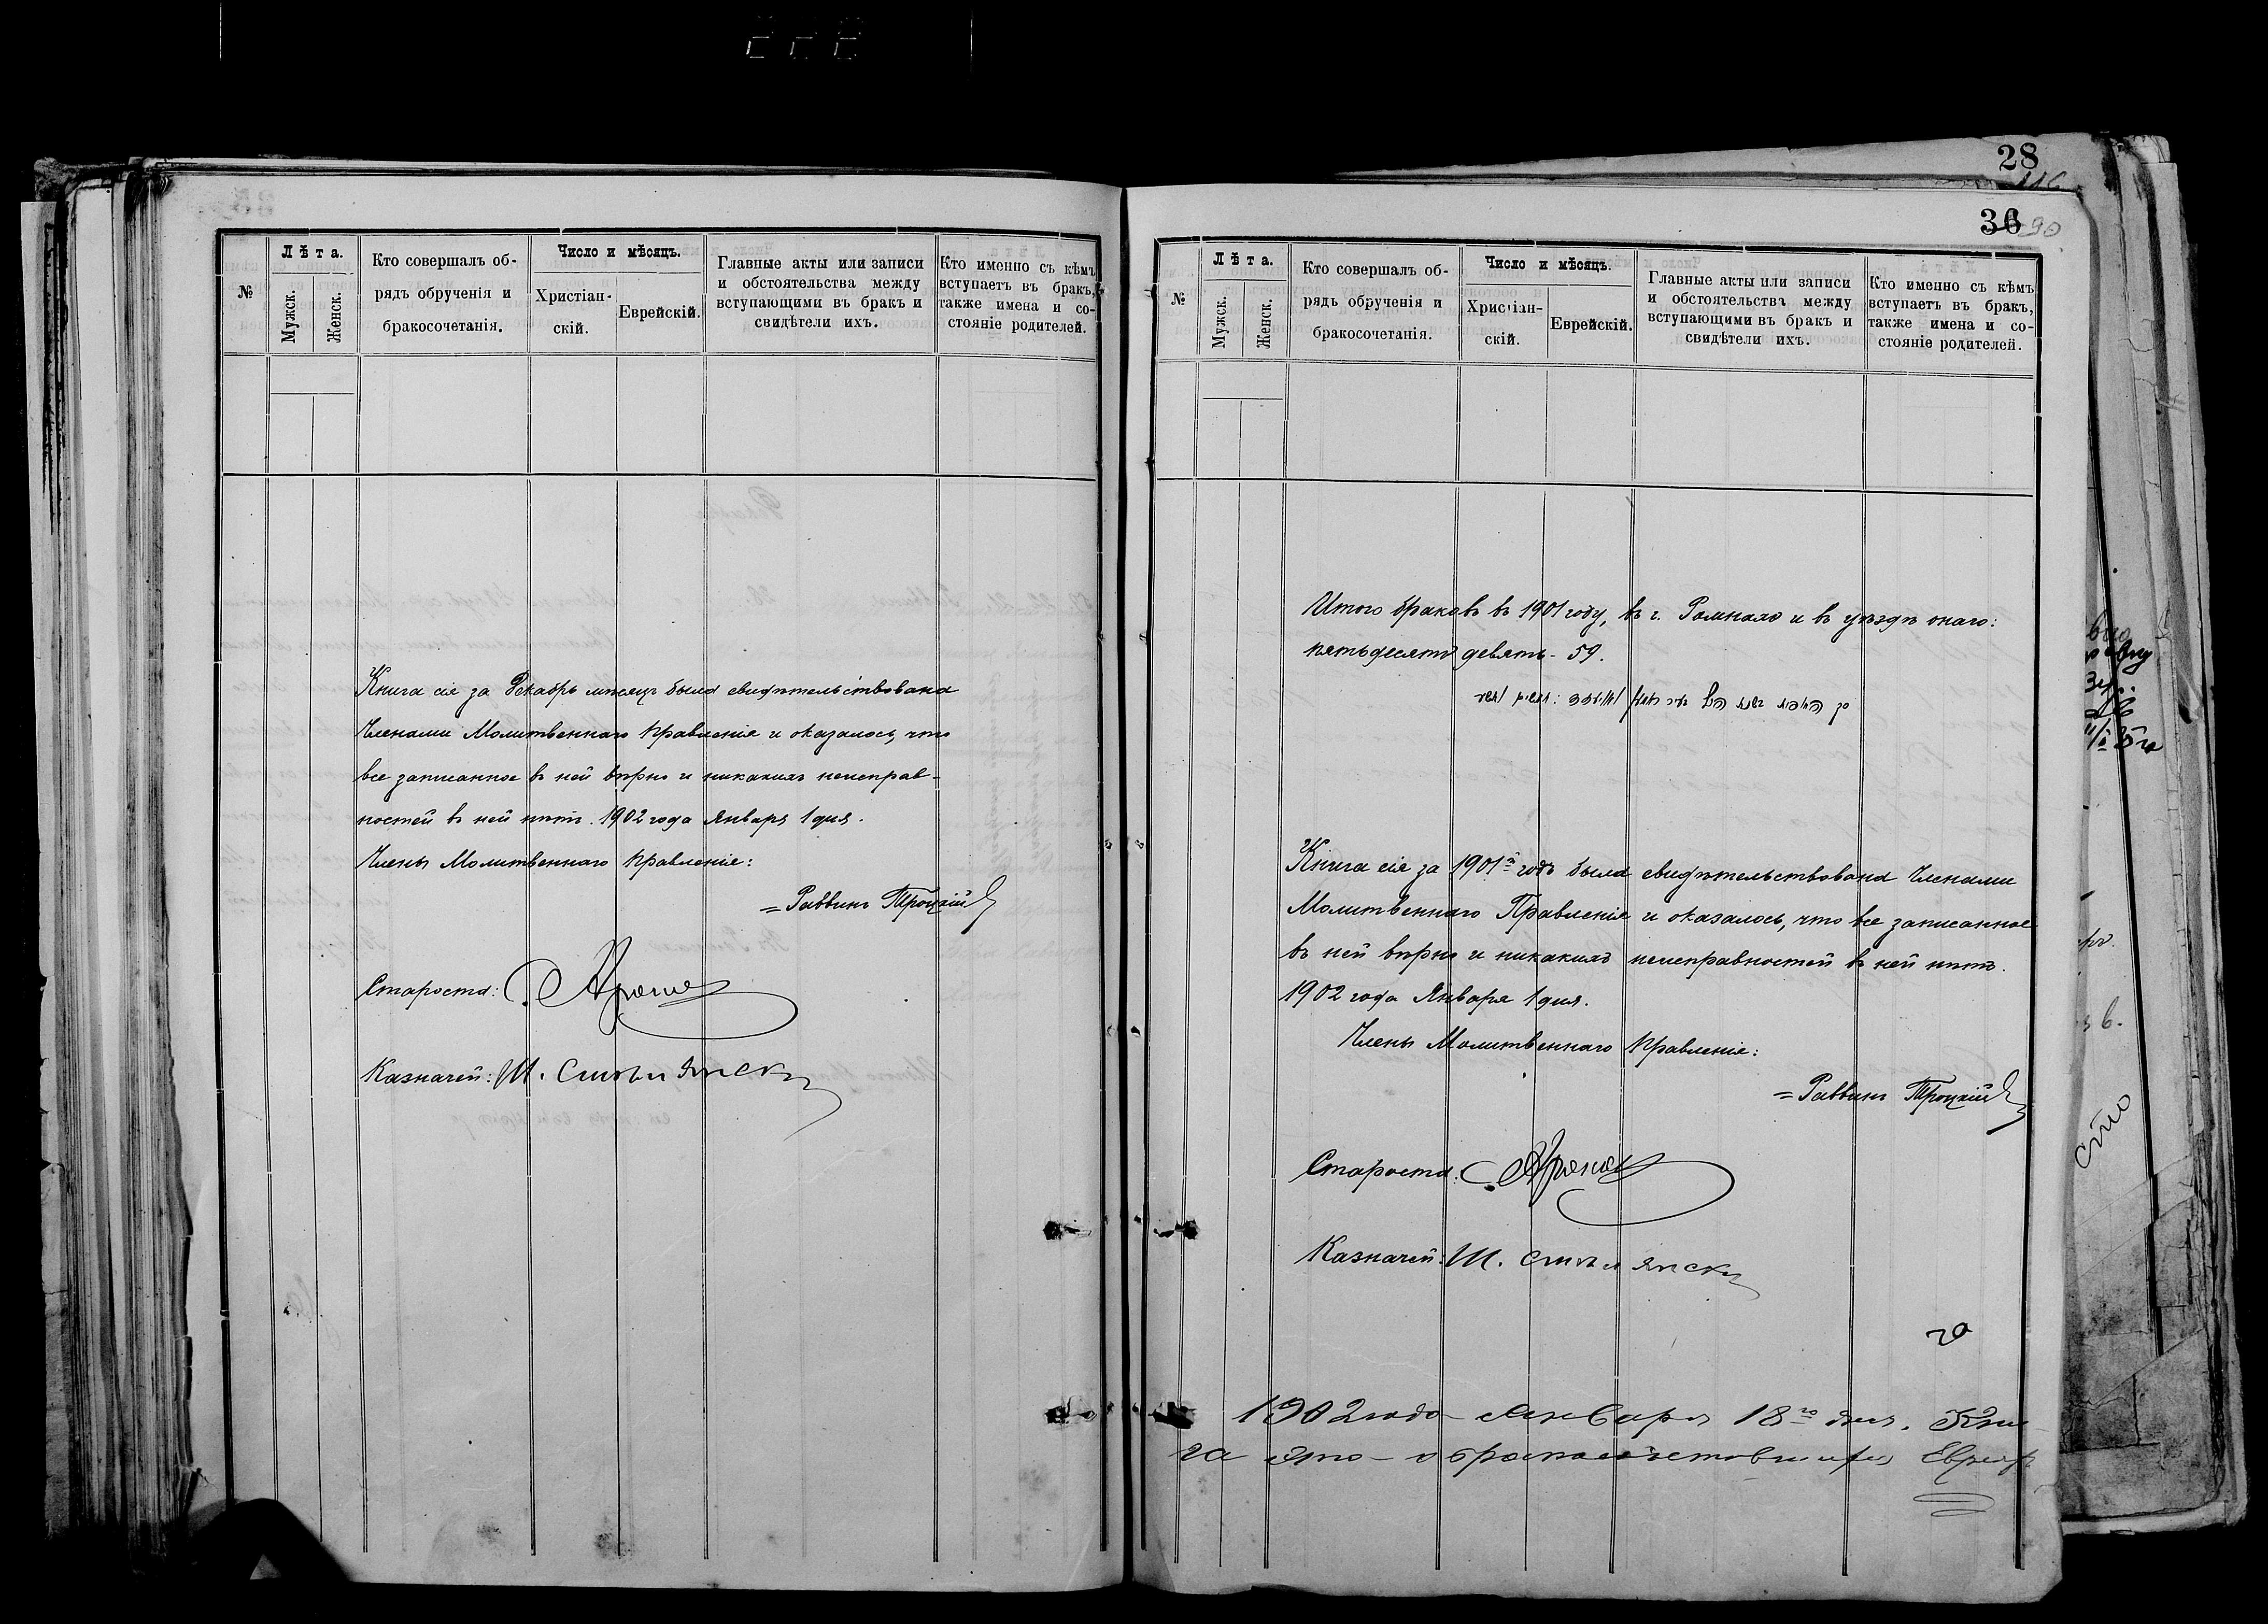 28
116
36 90
№
Лѣта.
Мужск.
Женск.
Кто совершалъ об-
рядъ обрученія и
бракосочетанія.
Число и мѣсяцъ.
Христіан-
скій.
Еврейскій.
Главные акты или записи
и обстоятельства между
вступающими въ бракъ и
свидѣтели ихъ.
Кто именно съ кѣмъ
вступаетъ въ бракъ,
также имена и со-
стояніе родителей.
Книга сія за Декабрь мѣсяцъ была свидѣтельствована
Членами Молитвеннаго Правленія и оказалось, что
все записанное въ ней вѣрно и никакихъ неисправ-
ностей въ ней нѣтъ. 1902 года Января 1 дня.
Члены Молитвеннаго Правленія:
= Раввинъ Троцкій
Староста:
Казначей: Ш.
№
Лѣта.
Мужск.
Женск.
Кто совершалъ об-
рядъ обрученія и
бракосочетанія.
Число и мѣсяцъ.
Христіан-
скій.
Еврейскій.
Главные акты или записи
и обстоятельства между
вступающими въ бракъ и
свидѣтели ихъ.
Кто именно съ кѣмъ
вступаетъ въ бракъ,
также имена и со-
стояніе родителей.
Итого браковъ въ 1901 году, въ г. Ромнахъ и въ уѣздѣ онаго:
пятьдесятъ девять - 59.
Книга сія за 1901й годъ была свидѣтельствована Членами
Молитвеннаго Правленія и оказалось, что все записанное
въ ней вѣрно и никакихъ неисправностей въ ней нѣтъ.
1902 года Января 1 дня.
Члены Молитвеннаго Правленія:
= Раввинъ Троцкій
Староста:
Казначей: Ш.
го
1902 года Января 18го дня. Кни-
га эта о бракосочетавшихся Евреях
сто